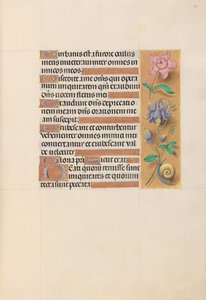 Turbatus est a furore oculus
meus inveteravi inter omnes in
imicos meos
Discedite a me omnes qui opera
mini iniquitatem quoniam exaudivit
dominus vocem fletus mei
Exaudivit dominus deprecatio
nem meam dominus orationem me
am suscepit
Erubescant et conturbentur
vehementer omnes inimici mei
convertantur et erubescant val
de velociter
Gloria patri Sicut erat
Beati quorum remisse sunt
iniquitates et quorum
tecta sunt peccata